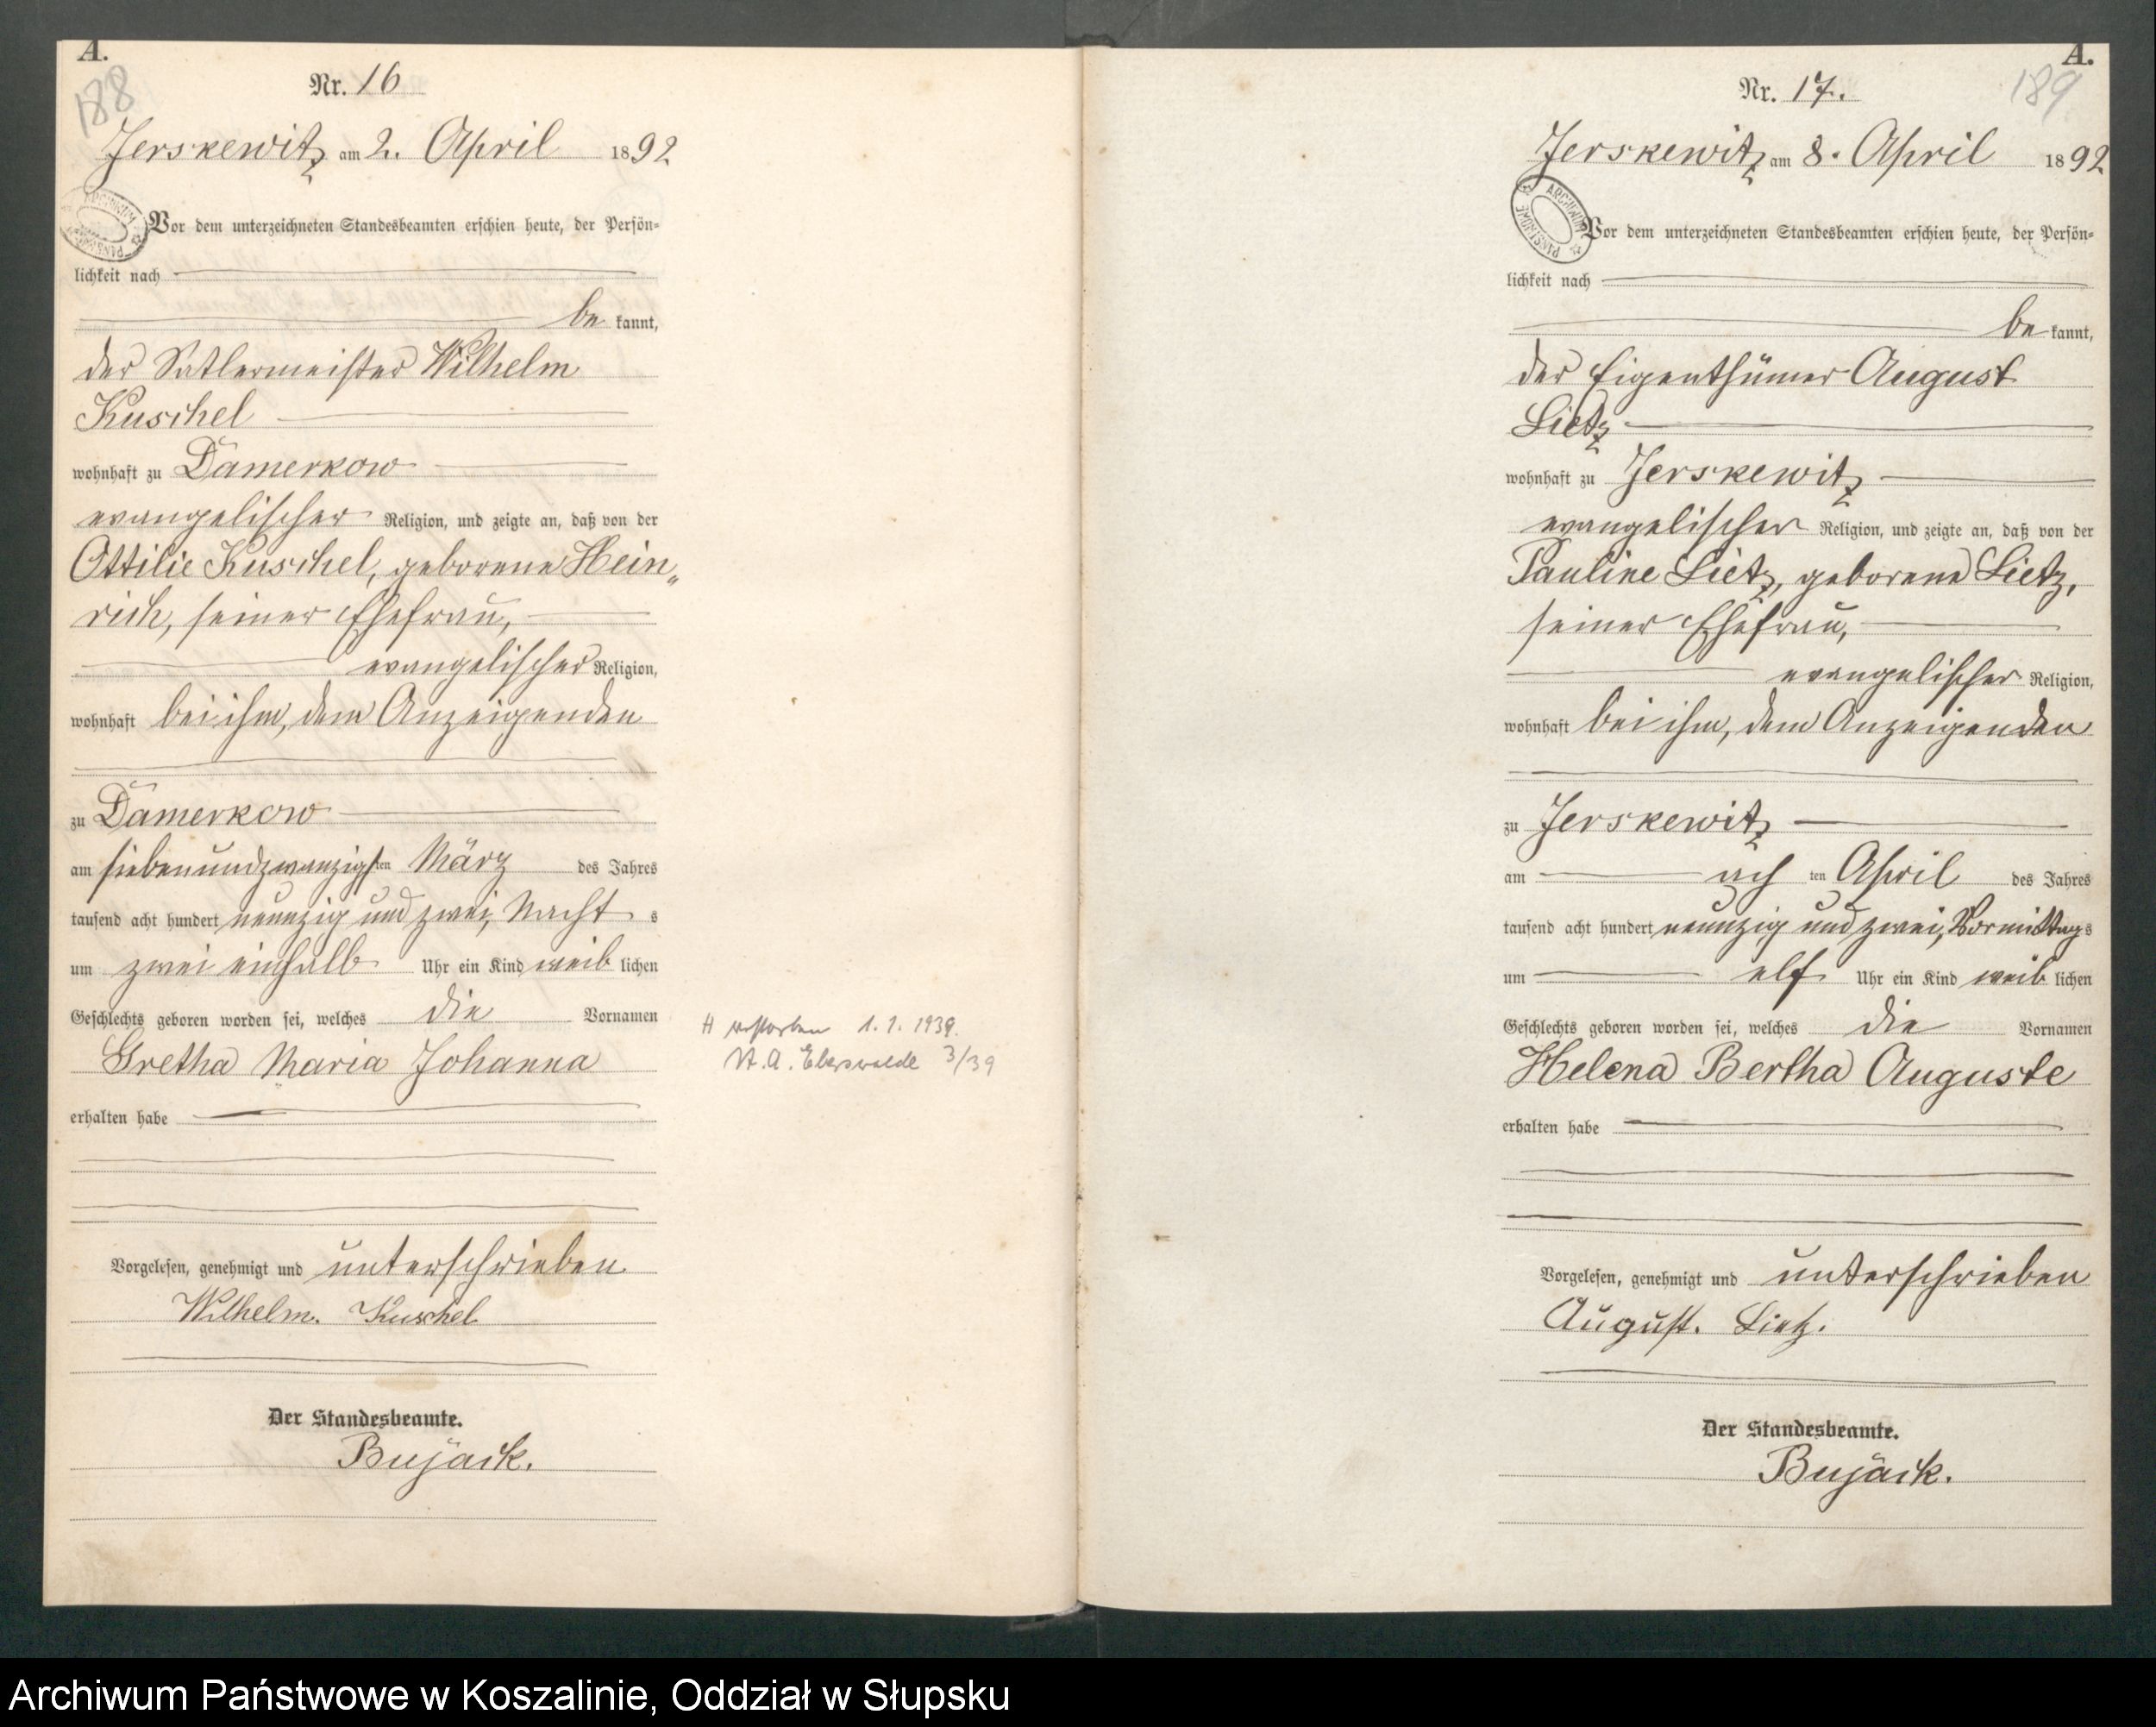 A.
188
Nr. 16
Jerskewitz am 2. April 1892
Vor dem unterzeichneten Standesbeamten erschien heute, der Persön=
lichkeit nach
be kannt,
der Satlermeister Wilhelm
Kuschel
wohnhaft zu Damerkow
evangelischer Religion, und zeigte an, daß von der
Ottilie Kuschel, geborene Hein„
rich, seiner Ehefrau,
evangelischer Religion,
wohnhaft bei ihm, dem Anzeigenden
zu Damerkow
am siebenundzwanzigsten März des Jahres
tausend acht hundert neunzig und zwei, Nacht s
um zwei einhalb Uhr ein Kind weib lichen
Geschlechts geboren worden sei, welches die Vornamen
Gretha Maria Johanna
erhalten habe
Vorgelesen, genehmigt und unterschrieben
Wilhelm. Kuschel
Der Standesbeamte.
Bujack.
H verstorben 1. 1. 1939.
St. A. Eberswalde 3/39
A.
189
Nr. 17.
Jerskewitz am 8. April 1892
ARCHIWUM PAŃSTWOWE
Vor dem unterzeichneten Standesbeamten erschien heute, der Persön=
lichkeit nach
be kannt,
der Eigenthümer August
Lietz
wohnhaft zu Jerskewitz
evangelischer Religion, und zeigte an, daß von der
Pauline Lietz, geborene Lietz,
seiner Ehefrau,
evangelischer Religion,
wohnhaft bei ihm, dem Anzeigenden
zu Jerskewitz
am ach ten April des Jahres
tausend acht hundert neunzig und zwei, Vormittag s
um elf Uhr ein Kind weib lichen
Geschlechts geboren worden sei, welches die Vornamen
Helena Bertha Auguste
erhalten habe
Vorgelesen, genehmigt und unterschrieben
August. Lietz.
Der Standesbeamte.
Bujack.
Archiwum Państwowe w Koszalinie, Oddział w Słupsku